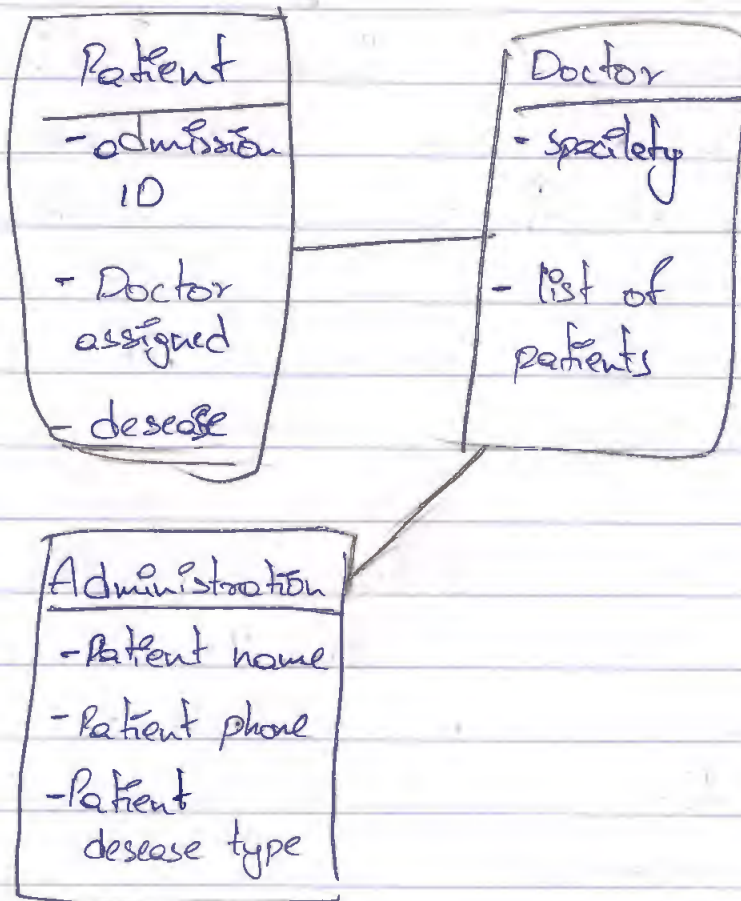 Patient
- admission
ID
- Doctor
assigned
- desease
Doctor
- specilety
- list of
patients
Administration
- Patient name
- Patient phone
- Patient
desease type